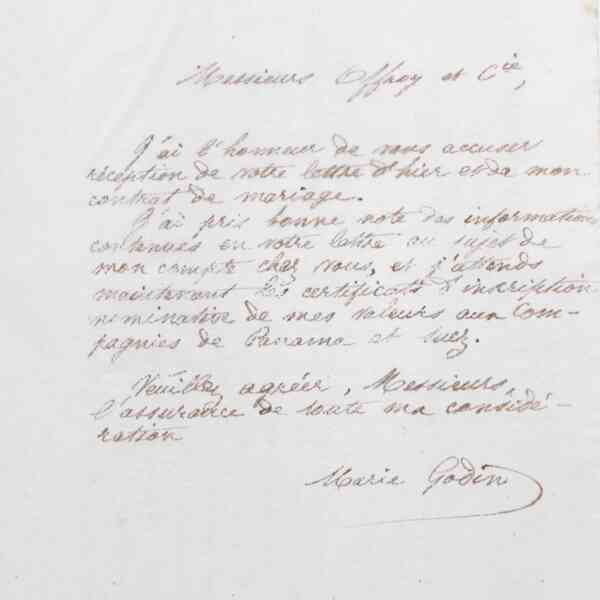 Messieurs Offroy et Cie,
J'ai l'honneur de vous accuser
réception de votre lettre d'hier et de mon
contrat de mariage.
J'ai pris bonne note des informations
contenues en votre lettre au sujet de
mon compte chez vous, et j'attends
maintenant les certificats d'inscription
nominative de mes valeurs aux Com-
pagnies de Panama et Suez.
Veuillez agréer, Messieurs,
l'assurance de toute ma considé-
ration
Marie Godin